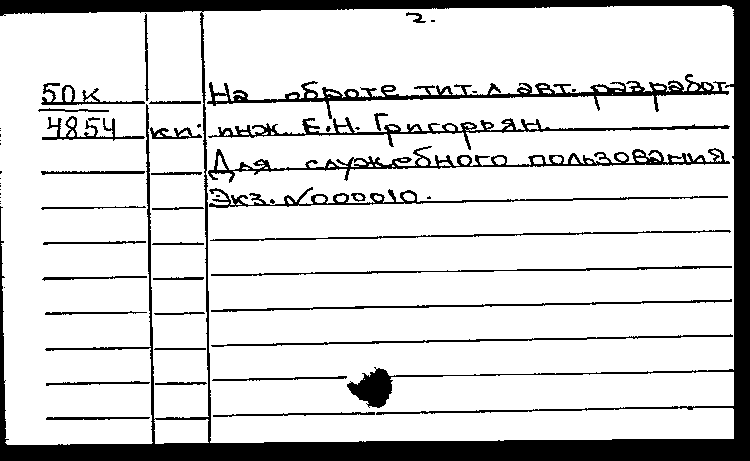 2.
50к На оброте тит. л авт. разработ-
4854 кп: инж. Е.Н. Григорьян.
Для служебного пользования.
Экз. №000010.